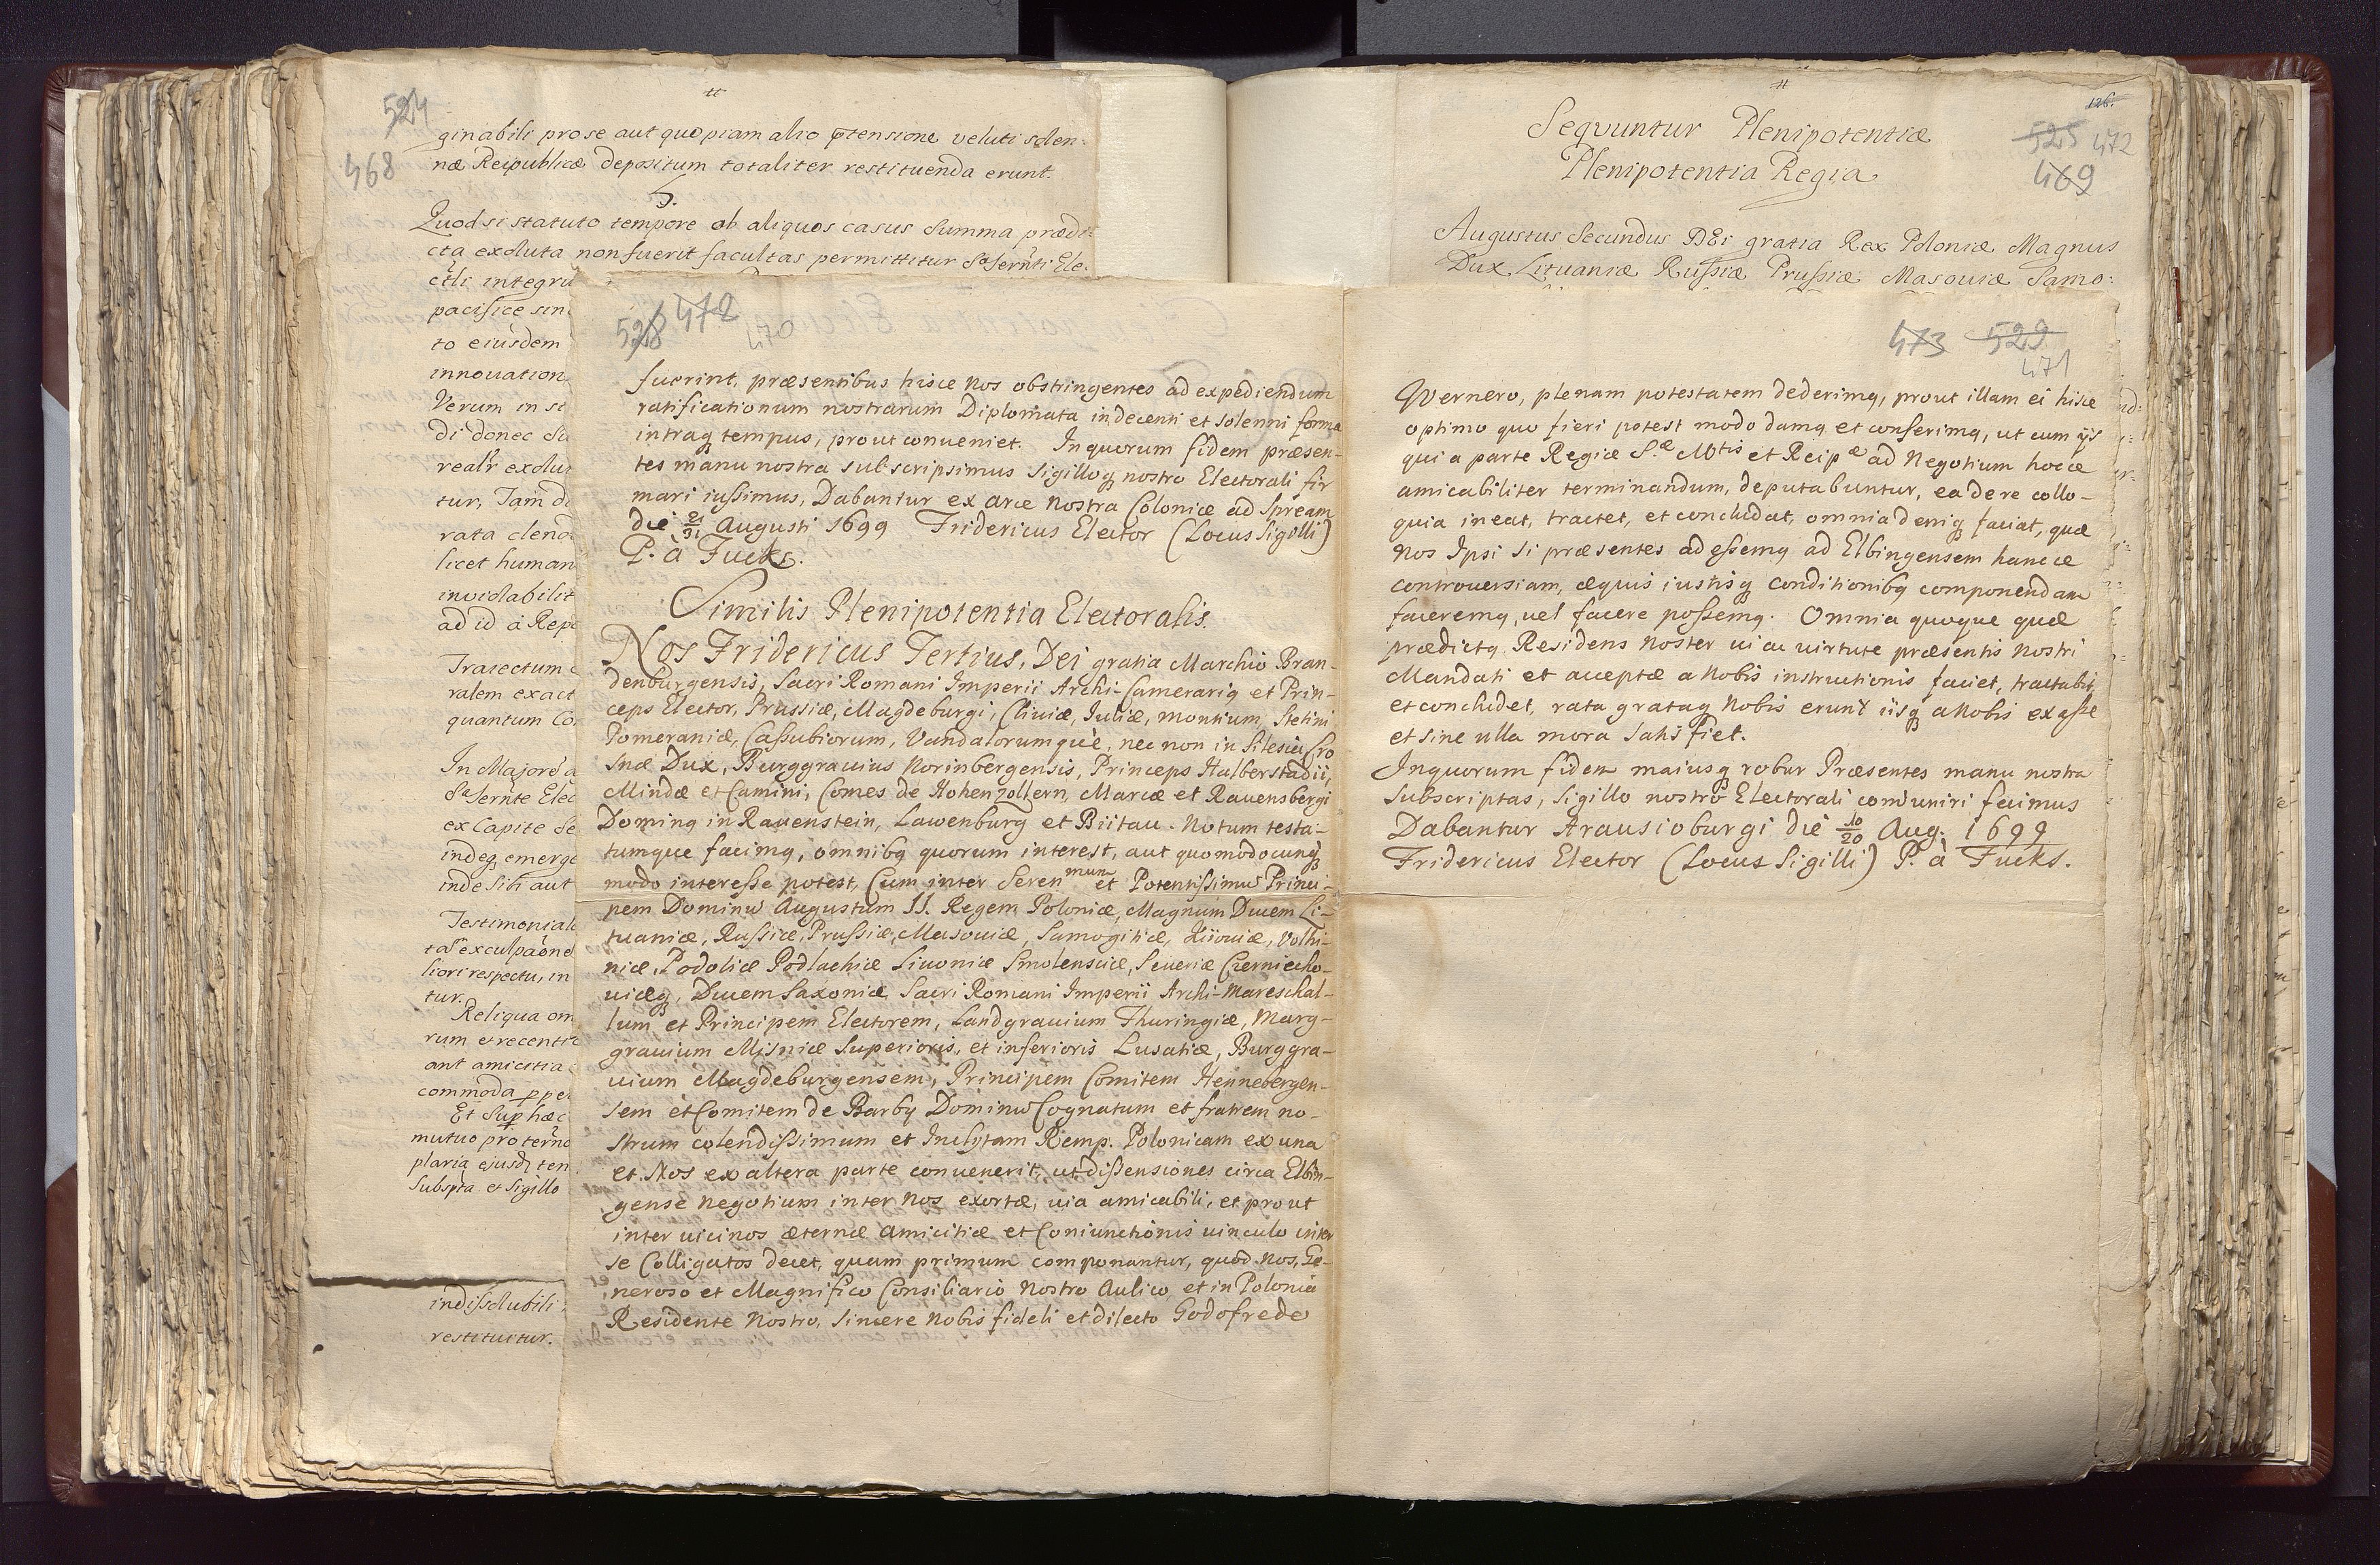 #
524
468
ginabili pro se aut quopiam alio prtensione veluti solen:
næ Reipublicæ depositum totaliter restituenda erunt.
5.
Quod si statuto tempore ob aliquos casus Summa prædi:
cta exoluta non fuerit facultas permittitur Sæ Sernti Ele:
ctli integru
pacifice sin
to eiusdem
innouation
Verum in st
di donec Su
realr exolu
tur, Iam de
rata clenod
licet human
inviolabilit
ad id à Rep
Traiectum
ralem exact
quantum Co
In Majore a
Sæ Sernte Elec
ex Capite de
indeq emerge
inde sibi aut
Testimonial
tas exculpaone
liori respectu, in
tur.
Reliqua om
rum et recentio
ant amicitia
commoda ppe
Et Sup hæc
mutuo pro terno
plaria ejusd ten
Subspta et Sigillo
indissolubili
restituitur.
528 472
470
fuerint, præsentibus hisce nos obstringentes ad expediendum
ratificationum nostrarum Diplomata in decenti et solenni forma
intraq tempus, prout conueniet. In quorum fidem præsen-
tes manu nostra subscripsimus Sigilloq nostro Electorali fir
mari iussimus, Dabantur ex arce nostra Coloniæ ad Spream
die 21/31 Augusti 1699 Fridericus Elector (Locus Sigilli)
P. à Fucks.
Similis Plenipotentia Electoralis.
Nos Fridericus Tertius, Dei gratia Marchio Bran-
denburgensis, Sacri Romani Imperii Archi-Camerariq et Prin-
ceps Elector, Prussiæ, Magdeburgi, Cliviæ, Iuliæ, Montium, Stetini
Pomeraniæ, Cassubiorum, Vandalorumque, nec non in Silesia Cro
snæ Dux, Burggrauius Norinbergensis, Princeps Halberstadii,
Mindæ et Camini, Comes de Hohenzollern, Marcæ et Rauensbergi
Dominq in Rauenstein, Lawenburg et Biitau. Notum testa-
tumque facimq, omnibq quorum interest, aut quomodocunq
modo interesse potest, Cum inter Seren mum et Potentissimu Princi-
pem Dominu Augustum II. Regem Poloniæ, Magnum Ducem Li-
tuaniæ, Russiæ, Prussiæ, Masouiæ, Samogitiæ, Kiiouiæ, Volhi-
niæ, Podoliæ Podlachiæ Liuoniæ Smolensciæ, Seueriæ Czerniecho-
uiæq, Ducem Saxoniæ Sacri Romani Imperii Archi-Mareschal-
lum et Principem Electorem, Landgrauium Thuringiæ, Marg-
grauium Misniæ Superioris, et inferioris Lusatiæ, Burggra-
uium Magdeburgensem, Principem Comitem Hennebergen-
sem et Comitem de Barby Dominu Cognatum et fratrem no-
strum colendissimum et Inclytam Remp. Polonicam ex una
et Nos ex altera parte conuenerit, ut dissensiones circa Elbin-
gense negotium inter nos exortæ, uia amicabili, et prout
inter uicinos æternæ amicitiæ et Coniunctionis uinculo inter
se Colligatos decet, quam primum componantur, quod Nos, Ge-
neroso et Magnifico Consiliario Nostro Aulico, et in Polonia
Residente Nostro, sincere nobis fideli et dilecto Godofredo
#
126.
525 472
469
Sequuntur Plenipotentiæ
Plenipotentia Regia
Augustus Secundus DEi gratia Rex Poloniæ Magnus
Dux Lituaniæ Russiæ Prussiæ Masouiæ Samo:
473 529
471
Wernero, plenam potestatem dederimq, prout illam ei hisce
optimo quo fieri potest modo damq et conferimq, ut cum ijs
qui a parte Regiæ S.æ Mtis et Reipæ ad Negotium hocce
amicabiliter terminandum, deputabuntur, ea de re collo-
quia ineat, tractet, et concludat, omnia deniq faciat, quæ
Nos Ipsi si præsentes adessemq ad Elbingensem hancce
controuersiam, æquis iustisq conditionibq componendam
faceremq, uel facere possemq. Omnia quoque quæ
prædictq Residens noster ui ac uirtute præsentis nostri
Mandati et acceptæ a Nobis instructionis faciet, tractabit,
et concludet, rata grataq Nobis erunt iisq a Nobis ex asse
et sine ulla mora satisfiet.
In quorum fidem maiusq robur Præsentes manu nostra
subscriptas, sigillo nostro Electorali communiri fecimus
Dabantur Arausioburgi die 10/20 Aug. 1699
Fridericus Elector (Locus Sigilli) P. à Fucks.